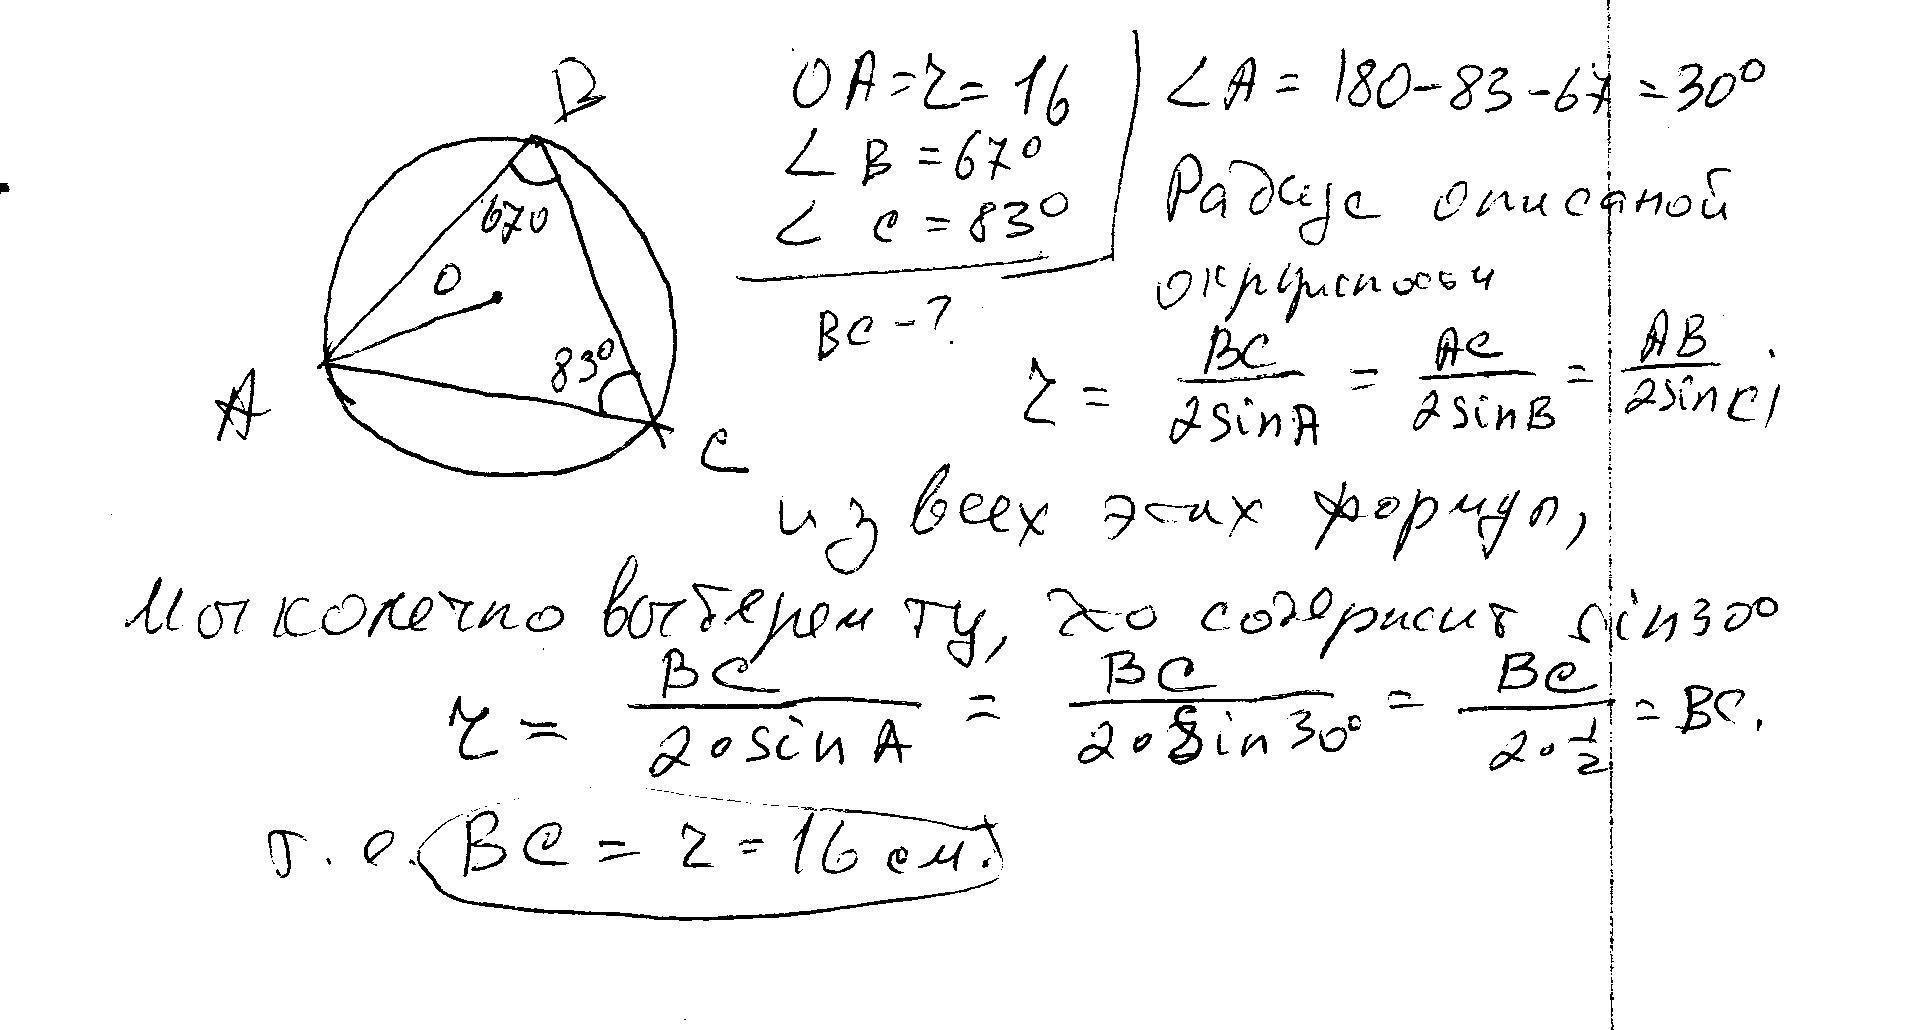 B
67°
O
83°
A
C
OA = r = 16
∠ B = 67°
∠ C = 83°
BC - ?
∠A = 180-83-67 = 30°
Радиус описаной
окружности
r = BC/2sinA = AC/2sinB = AB/2sinC;
из всех этих формул,
мы конечно выберем ту, что содержит sin30°
r = BC/2∘sinA = BC/2∘sin30° = BC/2∘1/2 = BC.
т.е. BC = r = 16 см.